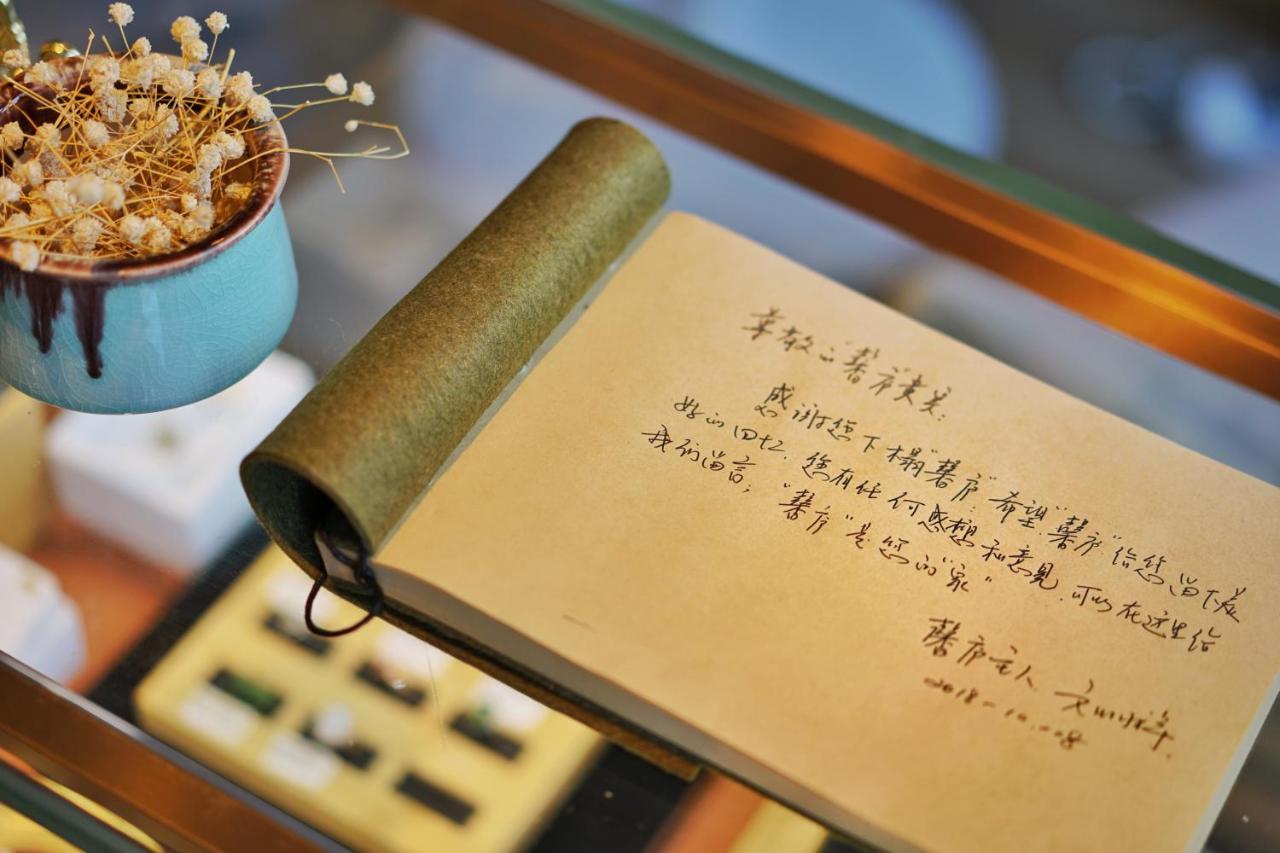 尊敬的"馨庐"贵宾:
感谢您下榻"馨庐"希望"馨庐"给您留下美
好的回忆. 您有任何感想和意见,可以在这里给
我们留言; "馨庐"是您的"家"
馨庐主人
2018-10.08